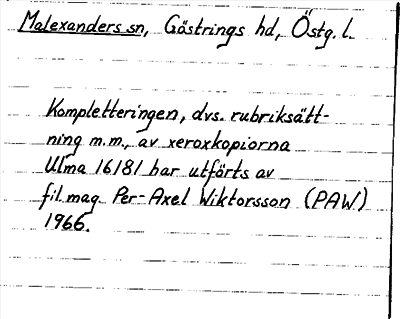 Malexanders sn, Göstrings hd, Östg. l.
Kompletteringen, dvs. rubriksätt-
ning m.m., av xeroxkopiorna
Ulma 16181 har utförts av
fil. mag. Per-Axel Wiktorsson (PAW)
1966.